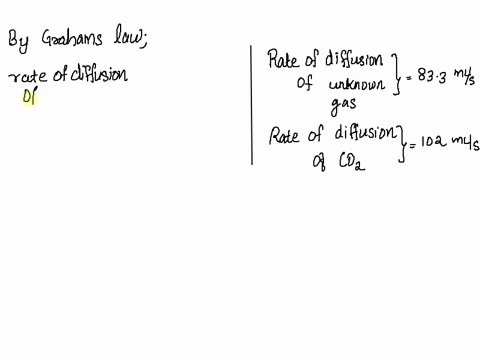 By Grahams law;
rate of diffusion
Of
Rate of diffusion
of unknown
gas
= 83.3 ml/s
Rate of diffusion
of CO2
= 102 ml/s